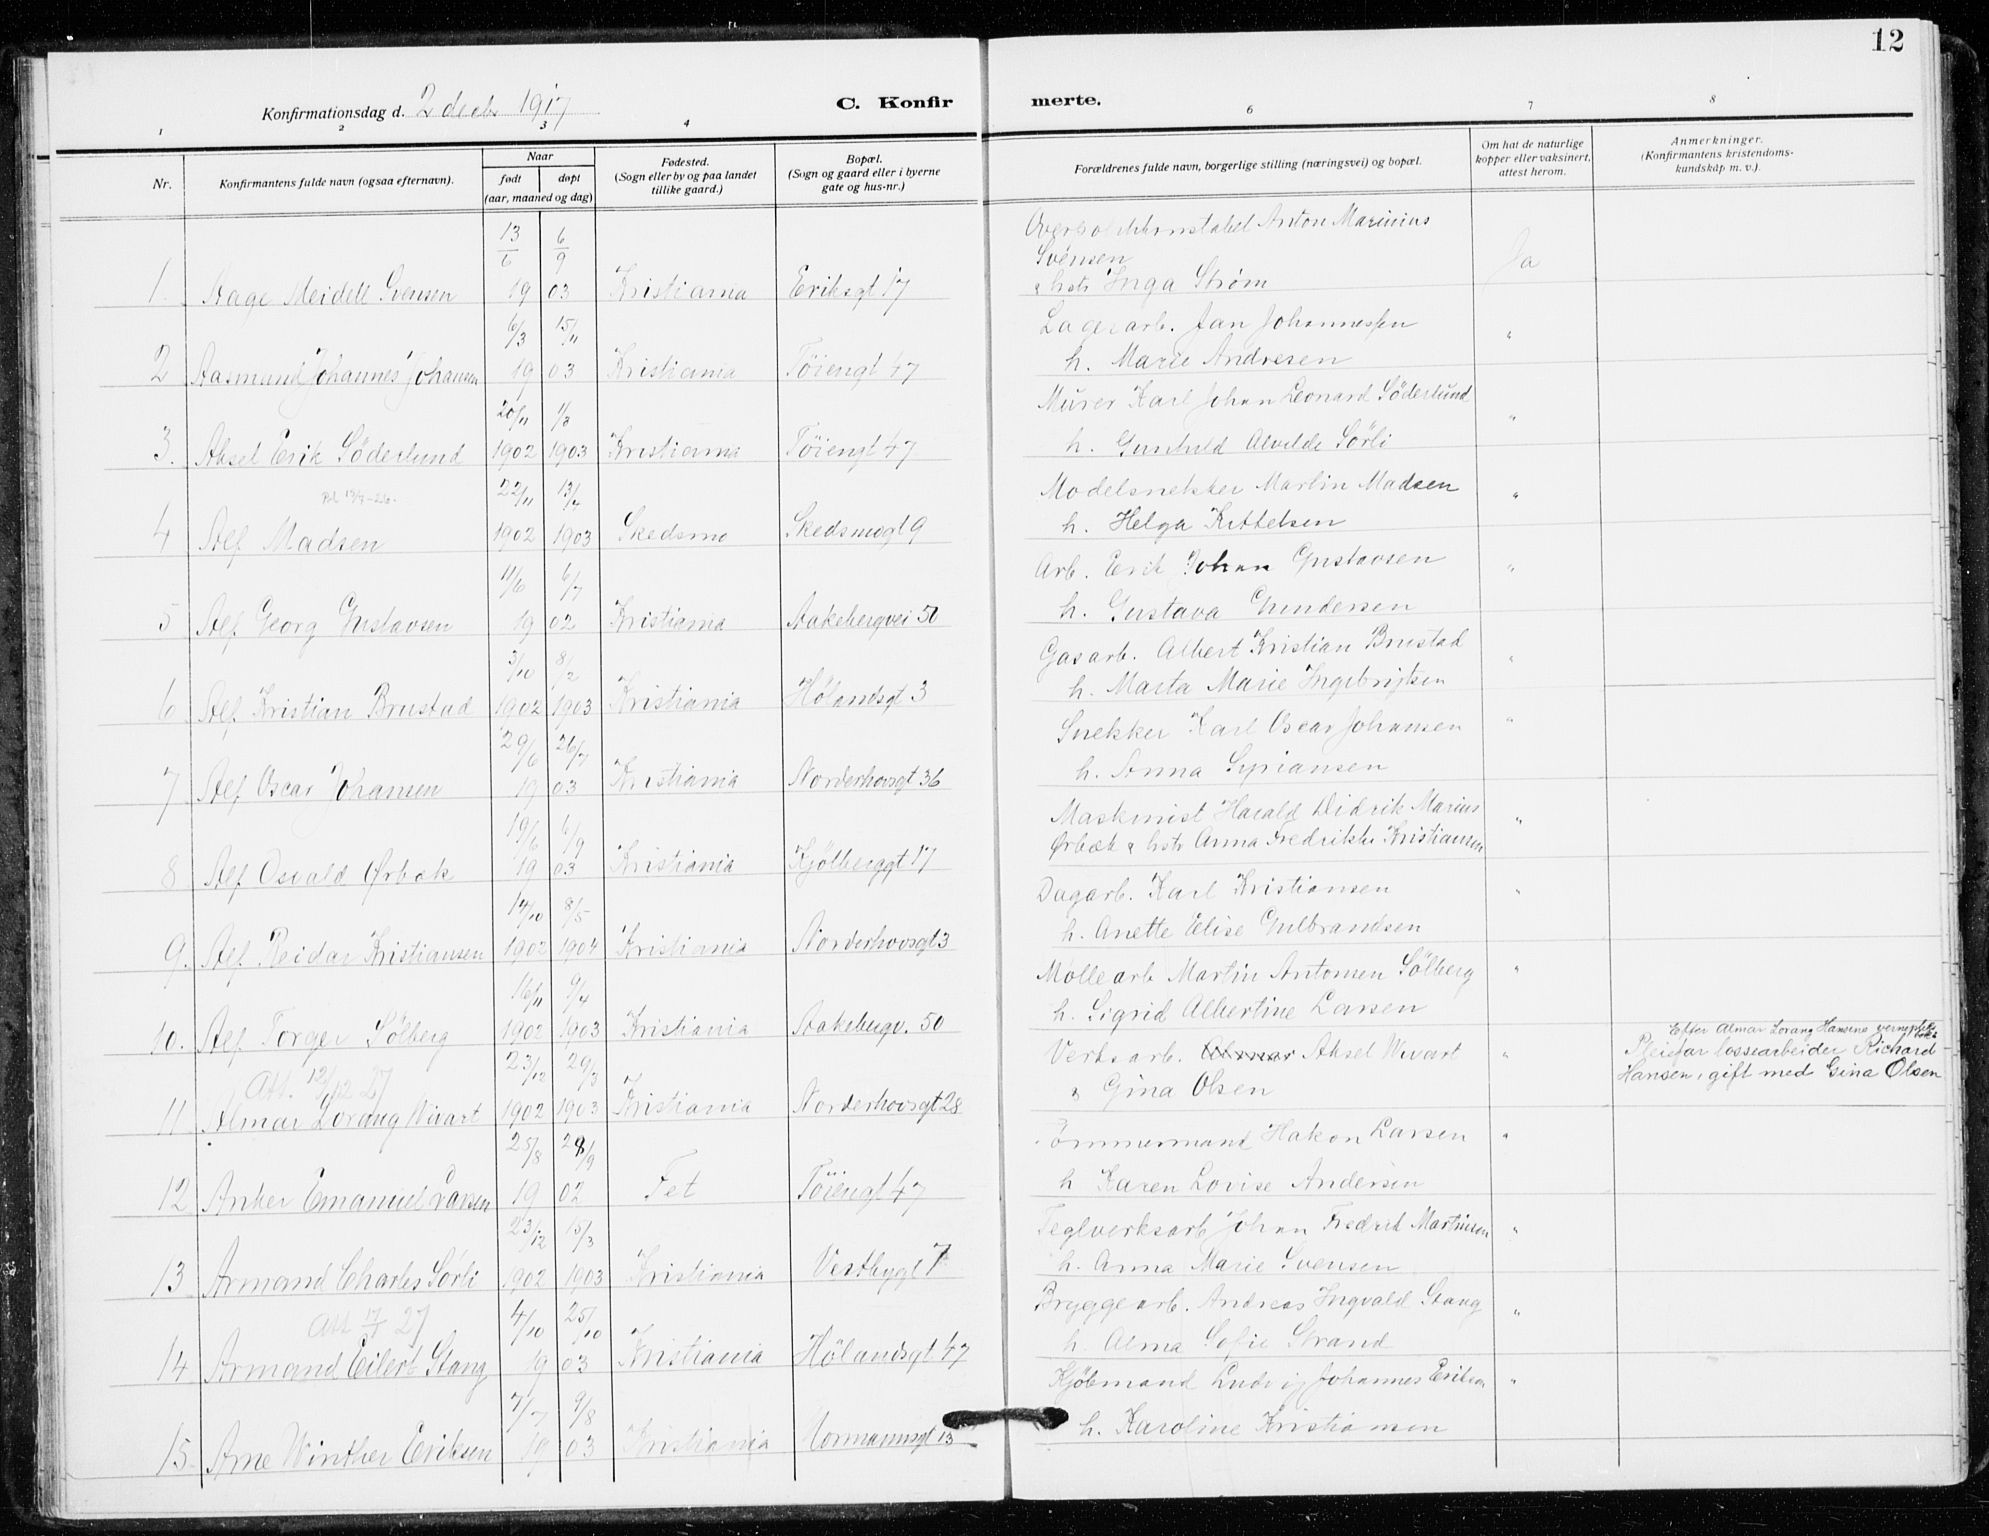 12
Konfirmationsdag d. 2 decbr 1917 C. Konfir merte.
1 2 3 4 6 7 8
Nr. Konfirmantens fulde navn (ogsaa efternavn). Naar født døpt (aar, maaned og dag)
Fødested. (Sogn eller by og paa landet tillike gaard.)
Bopæl. (Sogn og gaard eller i byerne gate og hus-nr.)
Forældrenes fulde navn, borgerlige stilling (næringsvei) og bopæl.
Om hat de naturlige kopper eller vaksinert, attest herom.
Anmerkninger. (Konfirmantens kristendoms-kundskap m. v.).
1. Aage Meidell Svensen 13/6 6/9 19 03 Kristiania Eriksgt 17 Anton Marinius Svensen & hstr Inga Strøm Ja
2 Aasmund Johannes Johansen 6/3 15/11 19 03 Kristiania Töiengt 47 Lagerarb. Jan Johannessen h. Marie Andresen "
3. Aksel Erik Söderlund 20/11 1/3 1902 1903 Kristiania Töiengt 47 Murer Karl Johan Leonard Söderlund h. Gunhild Alvilde Sörli "
4 Alf Madsen 22/11 13/4 1902 1903 Skedsmo Skedsmogt 9 Modelsnekker Martin Madsen h. Helga Kittelsen "
5 Alf Georg Gustavsen 11/6 6/7 19 02 Kristiania Aakebergvei 50 Arb. Erik Johan Gustavsen h. Gustava Gundersen "
6 Alf Kristian Brustad 3/10 8/2 1902 1903 Kristiania Hølandsgt 3 Gasarb. Albert Kristian Brustad h. Marta Marie Ingebrigtsen "
7 Alf Oscar Johansen 29/6 26/7 19 03 Kristiania Norderhovsgt 36 Snekker Karl Oscar Johansen h. Anna Syriansen "
8 Alf Osvald Ørbæk 19/6 6/9 19 03 Kristiania Kjölberggt 17 Maskinist Harald Didrik Marius Ørbæk & hstr Anna Fredrikke Kristiansen "
9. Alf Reidar Kristiansen 14/10 8/5 1902 1904 Kristiania Norderhovsgt 3 Dagarb. Karl Kristiansen h. Anette Elise Gulbrandsen "
10. Alf Torger Sölberg 16/11 9/4 1902 1903 Kristiania Aakebergv. 50 Møllearb Martin Antonsen Sölberg h. Sigrid Albertine Larsen "
Att. 12/12 27
11 Almar Lorang Wivart 23/12 29/3 1902 1903 Kristiania Norderhovsgt 28 Verksarb. Almar Aksel Wivart & Gina Olsen "
Efter Almar Lorang Hansens
Pleiefar lossearbeider Richard
Hansen, gift med Gina Olsen
12 Anker Emanuel Larsen 25/8 28/9 19 02 Fet Töiengt 47 Tömmermand Hakon Larsen h Karen Lovise Andersen "
13 Armand Charles Sörli 23/12 15/3 1902 1903 Kristiania Vestbygt 7 Teglverksarb Johan Fredrik Martinsen h. Anna Marie Svensen "
Att 17/1 27
14 Armand Eilert Stang 4/10 25/10 19 03 Kristiania Hölandsgt 47 Bryggearb. Andreas Ingvald Stang h. Alma Sofie Strand "
15. Arne Winther Eriksen 7/7 9/8 19 03 Kristiania Normannsgt 13 Kjöbmand Ludvig Johannes Eriksen h. Karoline Kristiansen "